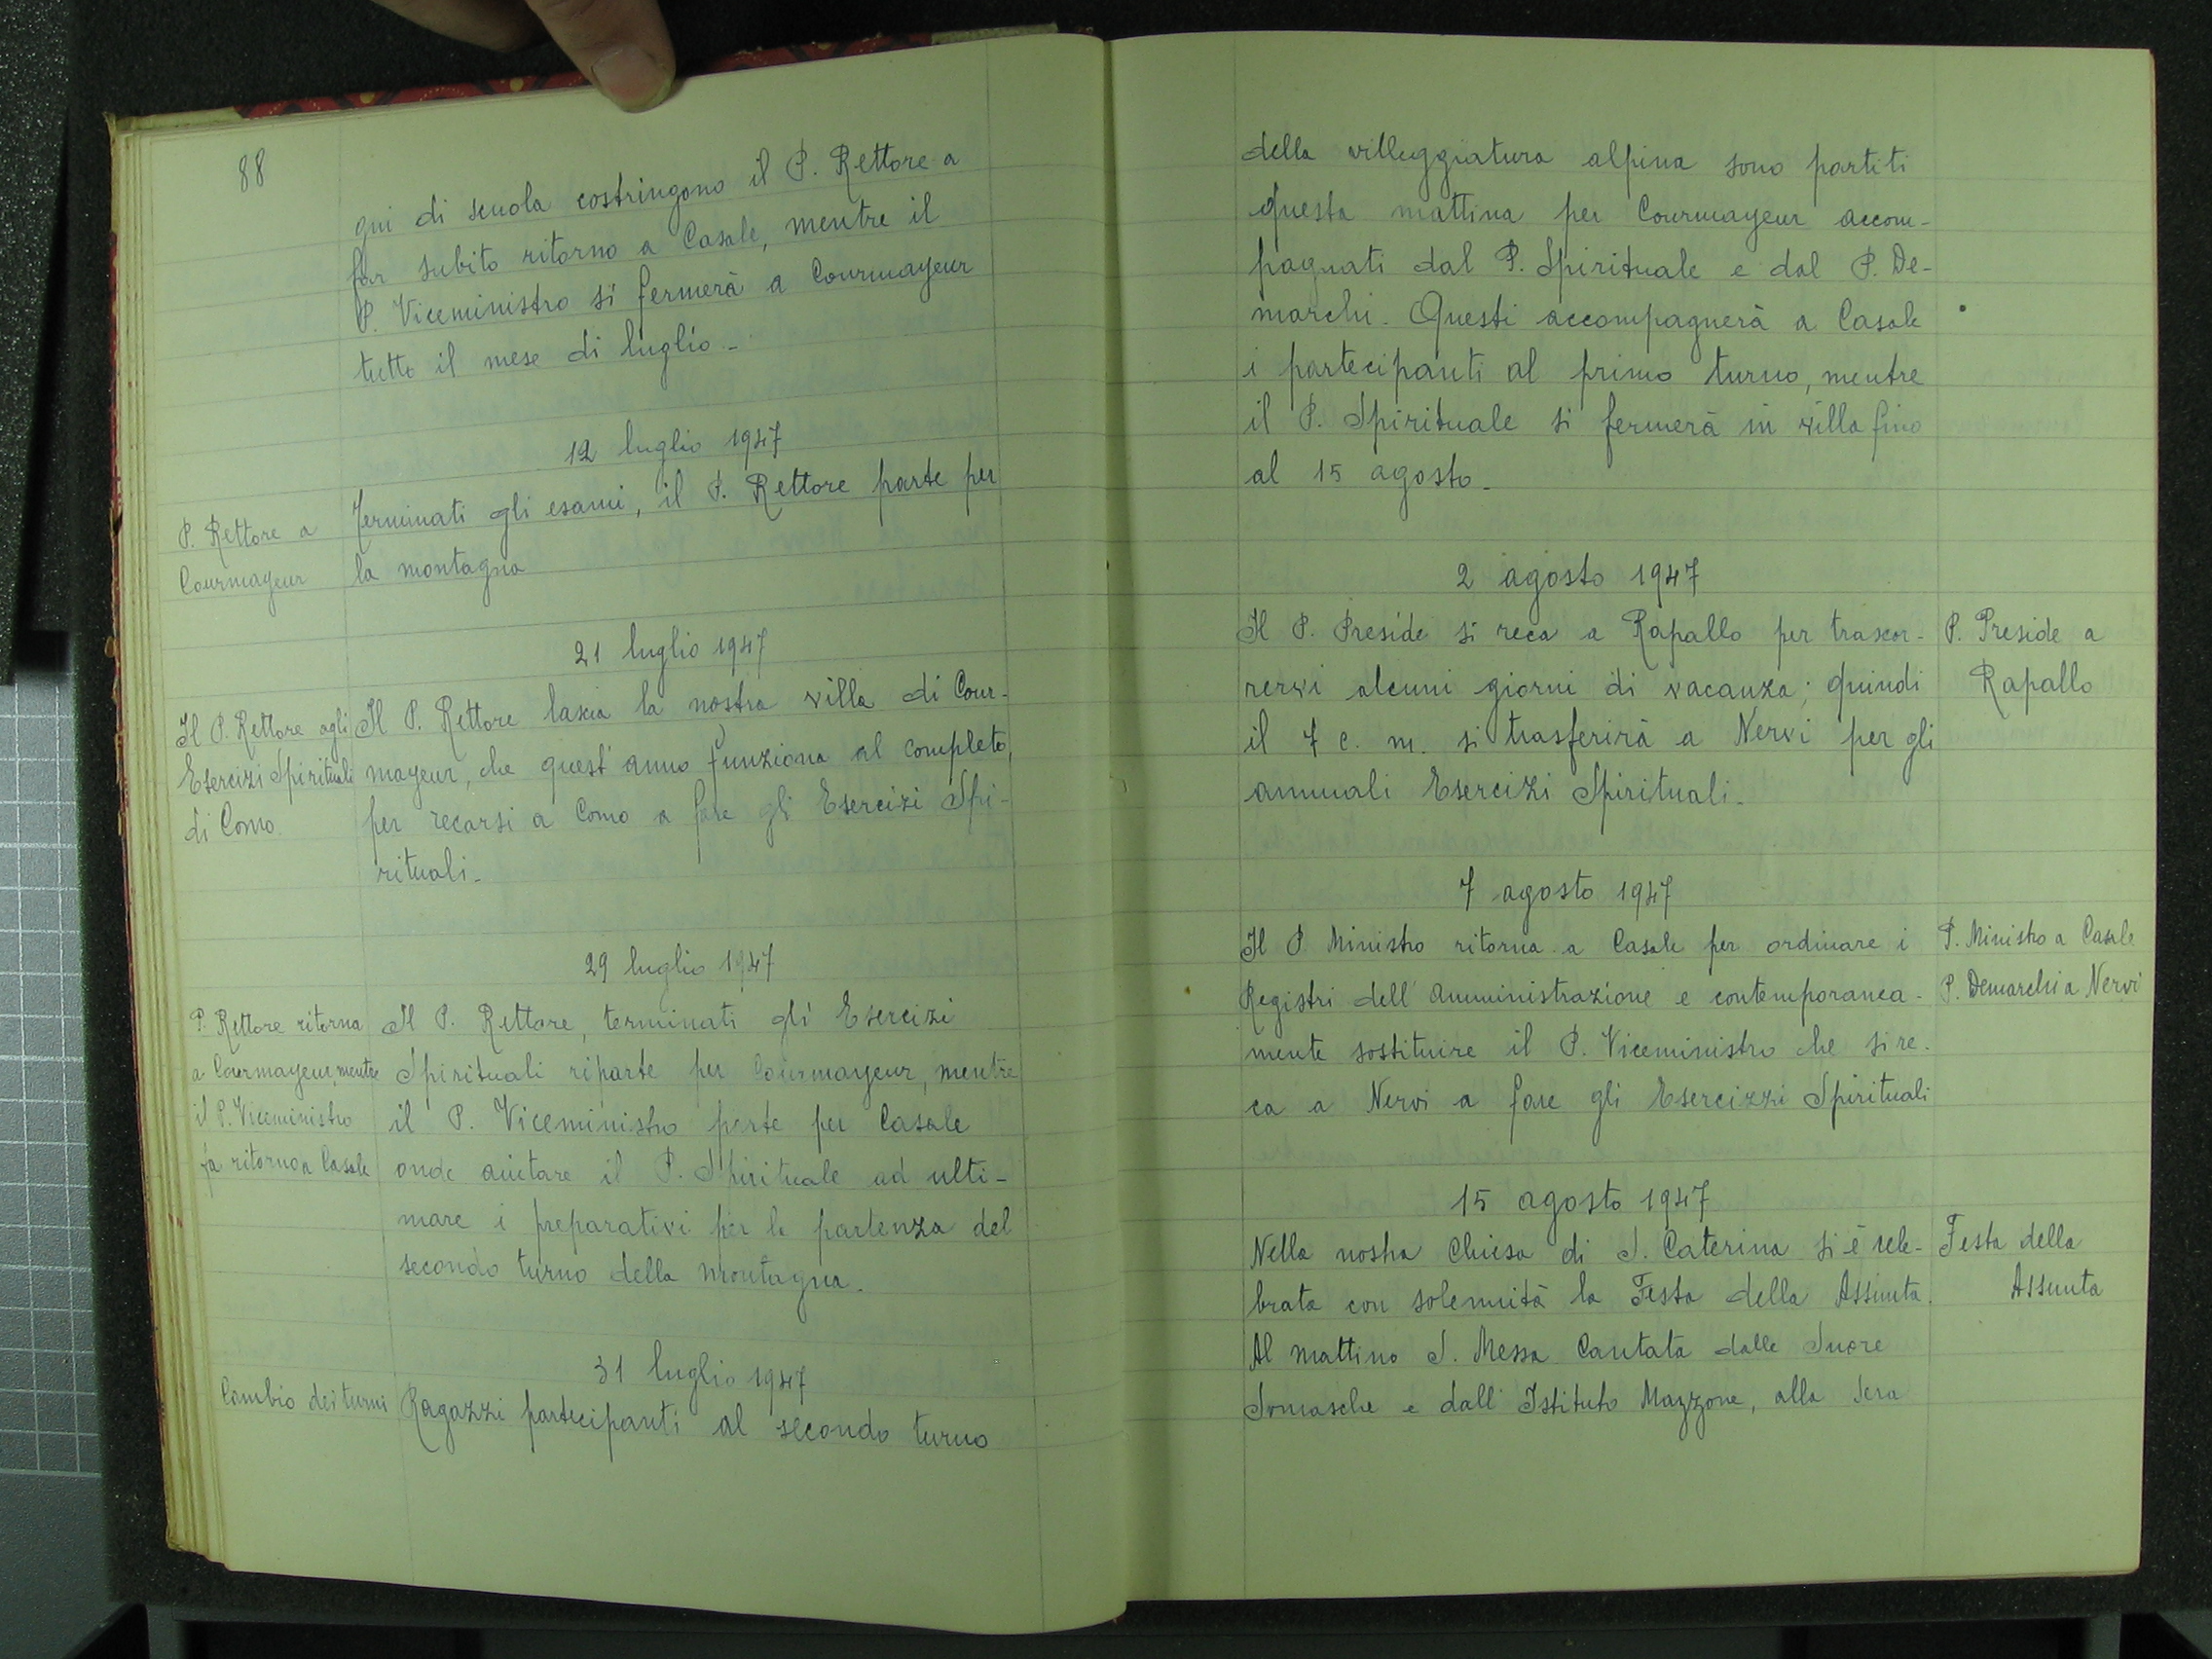 88
gni di scuola costringono il P. Rettore a
far subito ritorno a Casale, mentre il
P. Viceministro si fermerà a Courmayeur
tutto il mese di luglio.-
12 luglio 1947
P. Rettore a
Courmayeur
Terminati gli esami, il P. Rettore parte per
la montagna
21 luglio 1947
Il P. Rettore agli
Esercizi Spirituali
di Como
Il P. Rettore lascia la nostra villa di Cour-
mayeur, che quest'anno funziona al completo,
per recarsi a Como a fare gli Esercizi Spi-
rituali.-
29 luglio 1947
P. Rettore ritorna
a Courmayeur, mentre
il P. Viceministro
fa ritorno a Casale
Il P. Rettore, terminati gli Esercizi
Spirituali riparte per Courmayeur, mentre
il P. Viceministro parte per Casale
onde aiutare il P. Spirituale ad ulti-
mare i preparativi per la partenza del
secondo turno della montagna.
31 luglio 1947
Cambio dei turni
Ragazzi partecipanti al secondo turno
della villeggiatura alpina sono partiti
questa mattina per Courmayeur accom-
pagnati dal P. Spirituale e dal P. De-
marchi. Questi accompagnerà a Casale
i partecipanti al primo turno, mentre
il P. Spirituale si fermerà in villa fino
al 15 agosto.-
2 agosto 1947
Il P. Preside si reca a Rapallo per trascor-
rervi alcuni giorni di vacanza; quindi
il 7 c. m. si trasferirà a Nervi per gli
annuali Esercizi Spirituali.-
P. Preside a
Rapallo
7 agosto 1947
Il P. Ministro ritorna a Casale per ordinare i
Registri dell'Amministrazione e contemporanea-
mente sostituire il P. Viceministro che si re-
ca a Nervi a fare gli Esercizzi Spirituali
P. Ministro a Casale
P. Demarchi a Nervi
15 agosto 1947
Nella nostra Chiesa di S. Caterina si è cele-
brata con solennità la Festa della Assunta.
Al mattino S. Messa Cantata dalle Suore
Somasche e dall'Istituto Mazzone, alla sera
Festa della
Assunta